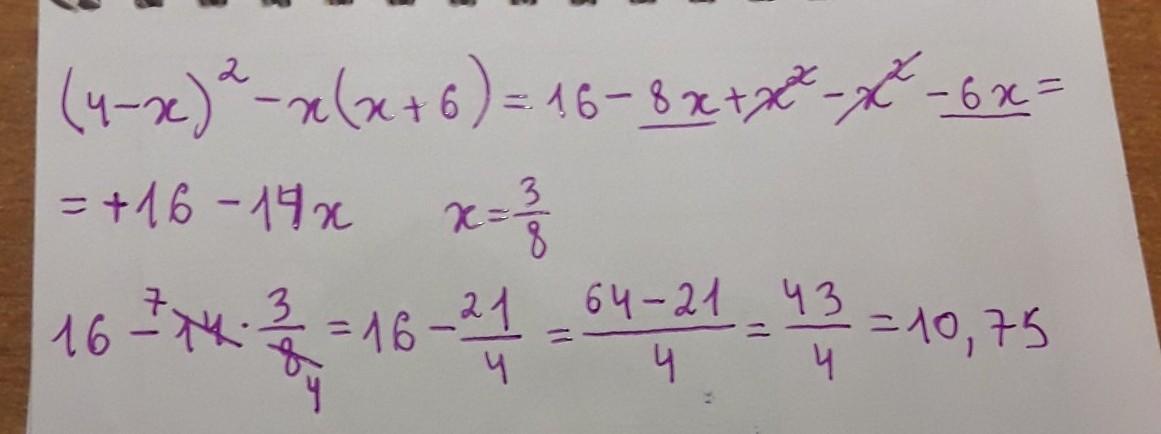 (4-x)² - x(x+6) = 16 - 8x + x² - x² - 6x =
= +16 - 14x x = 3/8
16 - 14 7 · 3/8 4 = 16 - 21/4 = 64-21/4 = 43/4 = 10,75